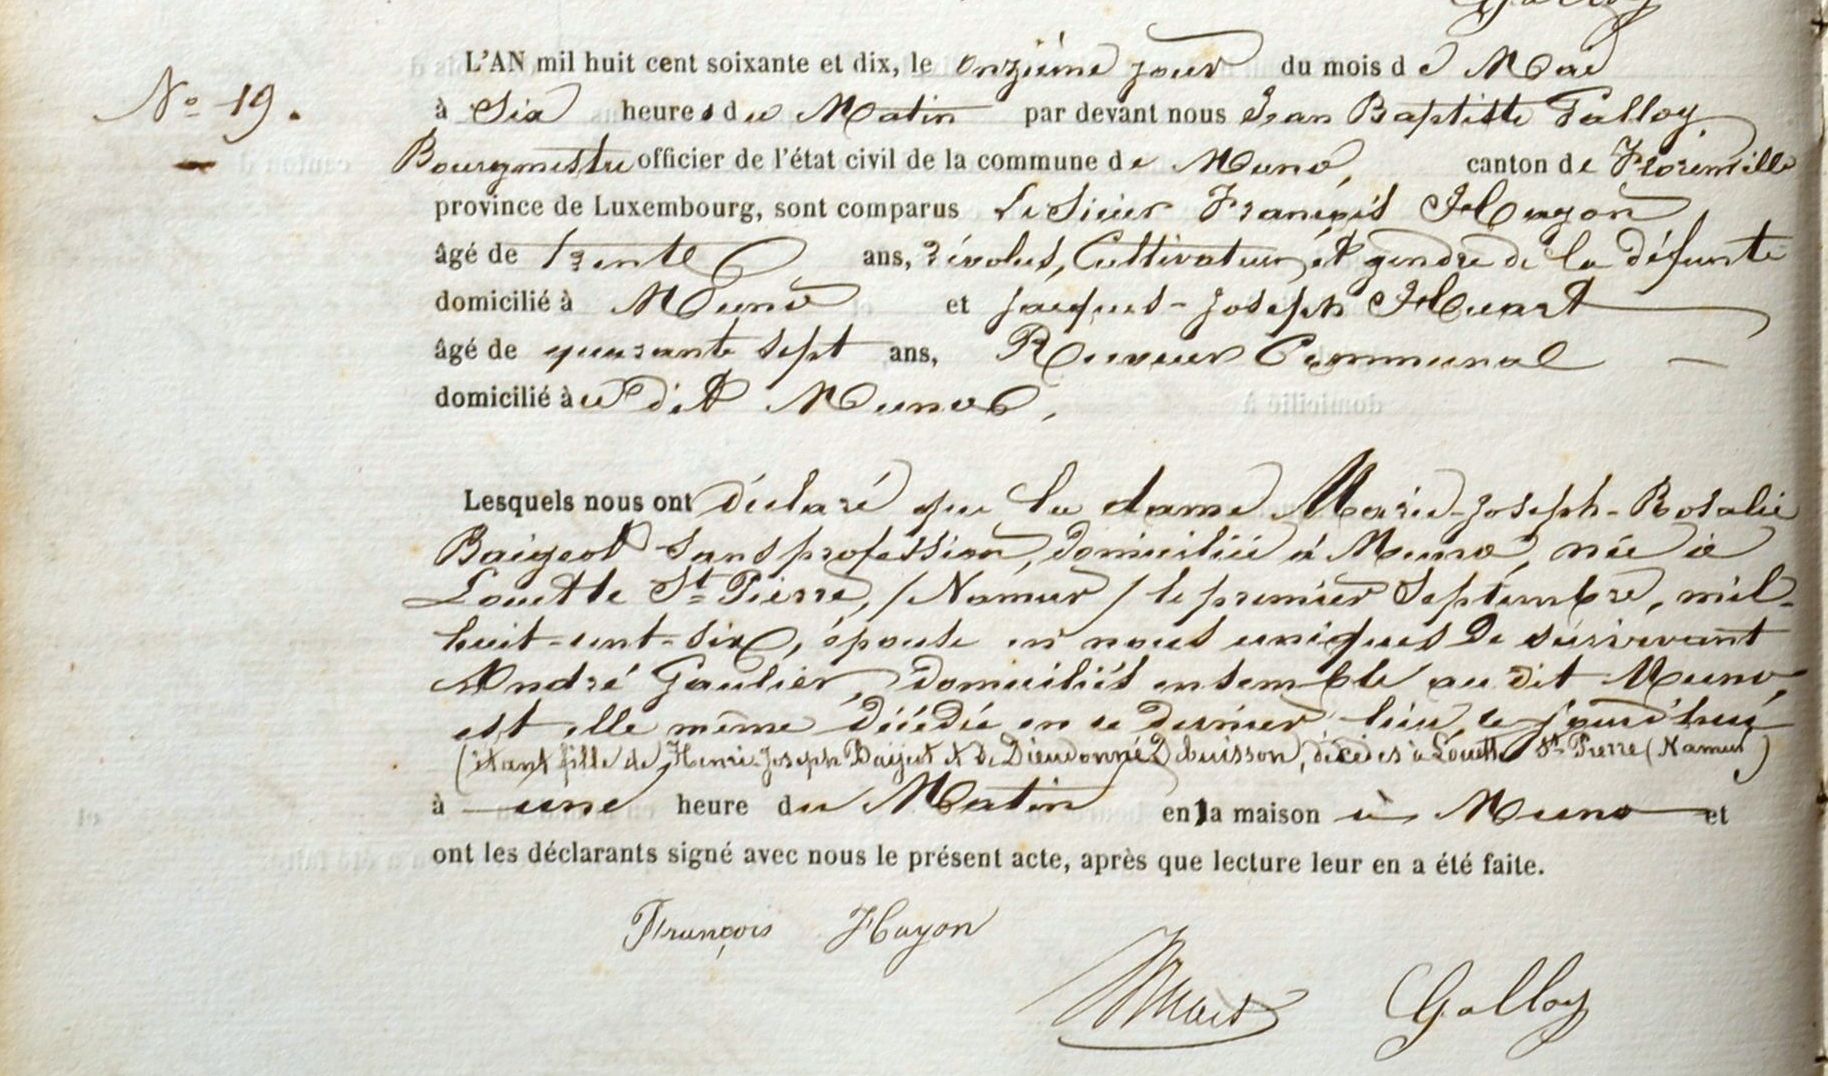 Galloy
L'AN mil huit cent soixante et dix, le onzième jour du mois de Mai
N° 19.
à Six heures du Matin par devant nous Jean Baptiste Galloy,
Bourgmestre officier de l'état civil de la commune de Muno, canton de Florenville
province de Luxembourg, sont comparus Le Sieur François Hayon
âgé de trente ans, révolus, Cultivateur, et gendre de la défunte
domicilié à Muno et Jacques-Joseph Huart
âgé de quarante sept ans, Receveur Communal
domicilié àu dit Muno.
Lesquels nous ont déclaré que la dame Marie-Joseph-Rosalie
Baigeot sans profession, domiciliée à Muno, née à
Louette St Pierre, /Namur/ le premier Septembre, mil-
huit-cent-six, épouse en nous uniques de survivant
André Gaulier, domiciliés ensemble au dit Muno,
est elle même décédée en ce dernier lieu, ce jourd'hui
(étant fille de Henri-Joseph Baijot et de Dieudonnée Debuisson, décédés à Louette St Pierre (Namur)
à une heure du Matin en la maison à Muno et
ont les déclarants signé avec nous le présent acte, après que lecture leur en a été faite.
François Hayon
Huart Galloy